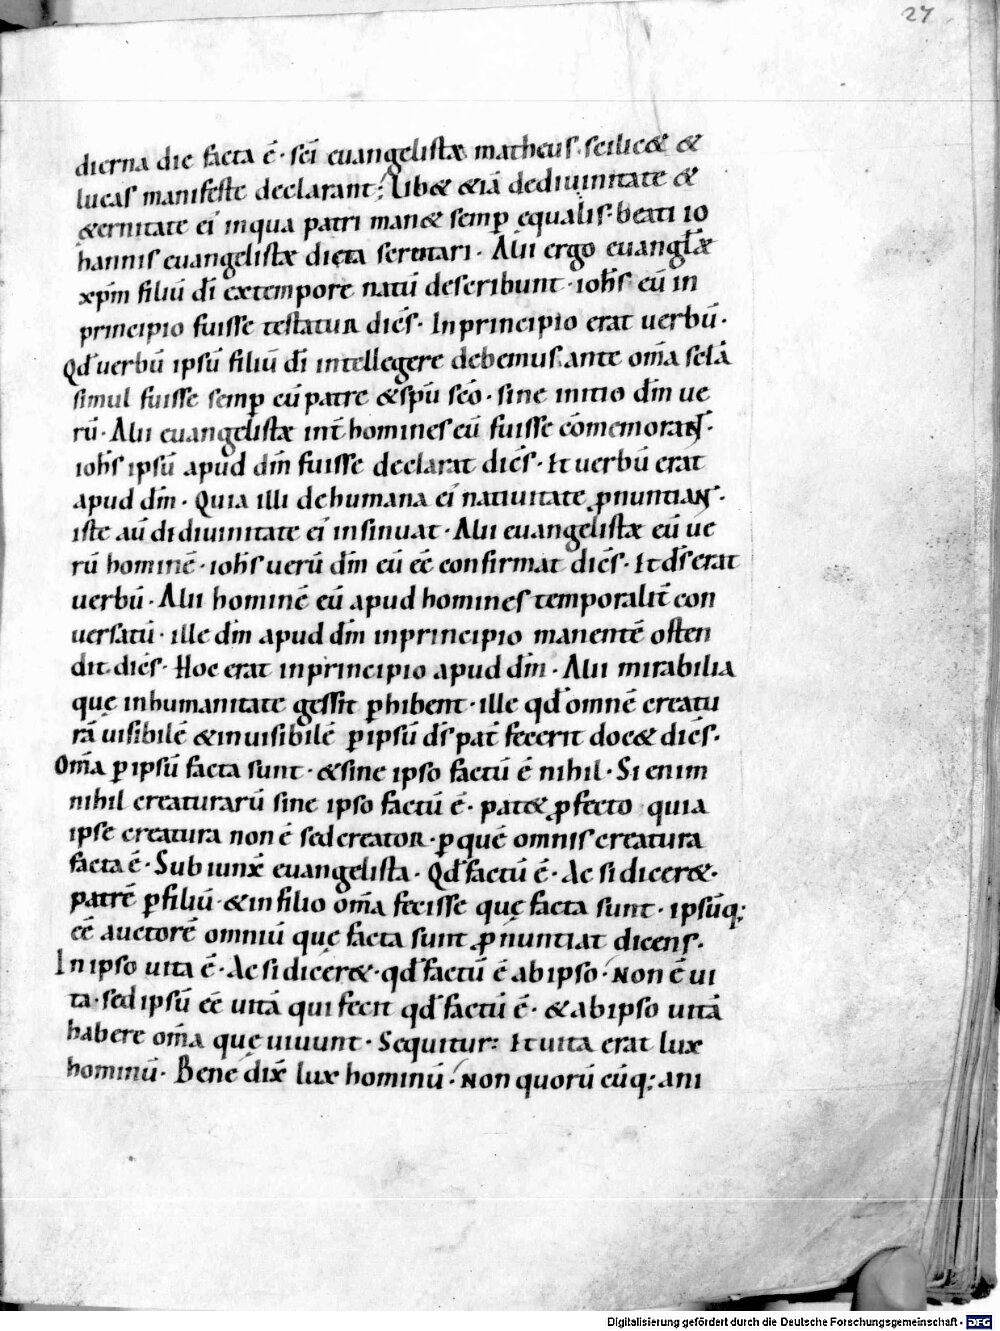 27
dierna die facta ē· sc̄i euangelistæ matheus. scilic& &
lucas manifeste declarant; Lib& &iā dediuinitate &
&ernitate ei᷒ inqua patri man& semp̱ ęqualis· beati io
hannis euangelistæ dicta scrutari· Alii ergo euangl̄æ
xp̄m filiū dī extempore natū describunt· ioħs eū in
principio fuisse testatur dicēs· Inprincipio erat uerbū·
Qd̄ uerbū ipsū filiū dī intellegere debemus. ante om̄a sc̄lā
simul fuisse semp̱ cū patre &sp̄u sc̄o· sine initio dm̄ ue
rū· Alii euangelistæ int̄ homines eū fuisse cōmemorant·
ioħs ipsū apud dm̄ fuisse declarat dicēs· Et uerbū erat
apud dm̄· Quia illi dehumana ei᷒ natiuitate ꝓnuntiant·
iste aū di diuinitate ei᷒ insinuat· Alii euangelistæ eū ue
rū hominē· ioħs uerū dm̄ eū eē confirmat dicēs· Et ds̄ erat
uerbū· Alii hominē eū apud homines temporalit̄ con
uersatū· ille dm̄ apud dm̄ inprincipio manentē osten
dit dicēs· Hoc erat inprincipio apud dm̄· Alii mirabilia
quę inhumanitate gessit ꝑhibent· ille qd̄ omnē creatu
rā uisibilē &inuisibilē ꝑ ipsū ds̄ pat̄ fecerit doc& dicēs·
Om̄a ꝑ ipsū facta sunt· &sine ipso factū ē nihil· Si enim
nihil creaturarū sine ipso factū ē· pat& ꝓfecto quia
ipse creatura non ē sed creator· ꝑ quē omnis creatura
facta ē· Subiunx̄ euangelista· Qd̄ factū ē· Ac si dicer&·
patrē ꝑ filiū· &in filio om̄a fecisse quę facta sunt· ipsūq;
eē auctorē omniū quę facta sunt ꝓnuntiat dicens·
In ipso uita ē· Ac si dicer&· qd̄ factū ē ab ipso· Non ē ui
ta· sed ipsū eē uitā qui fecit qd̄ factū ē· &ab ipso uitā
habere om̄a quę uiuunt· Sequitur: Et uita erat lux
hominū· Bene dix̄ lux hominū· Non quorū cūq; ani
Digitalisierung gefördert durch die Deutsche Forschungsgemeinschaft - DFG